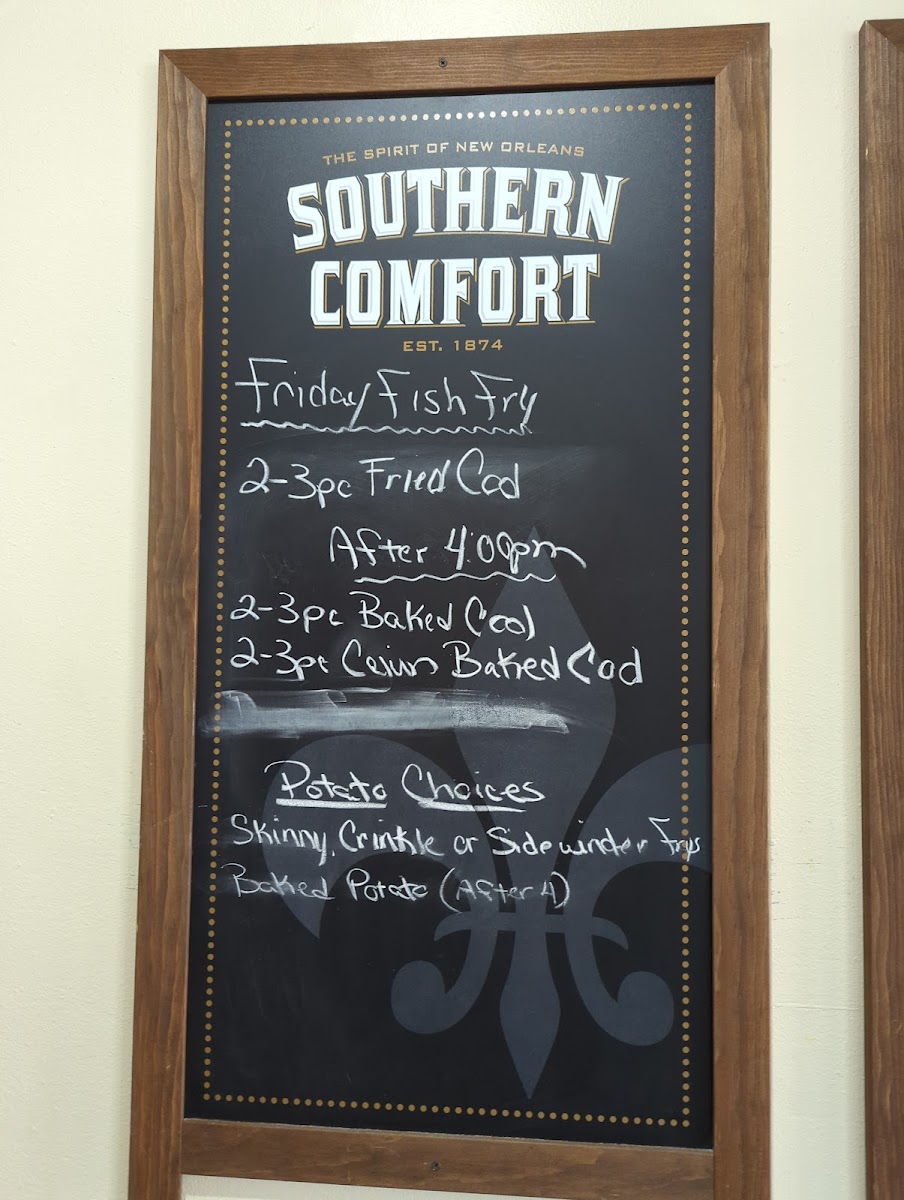 THE SPIRIT OF NEW ORLEANS
SOUTHERN
COMFORT
EST. 1874
Friday Fish Fry
2-3pc Fried Cod
After 4:00pm
2-3pc Baked Cod
2-3pc Cajun Baked Cod
Potato Choices
Skinny, Crinkle or Sidewinder Frys
Baked Potato (After 4)